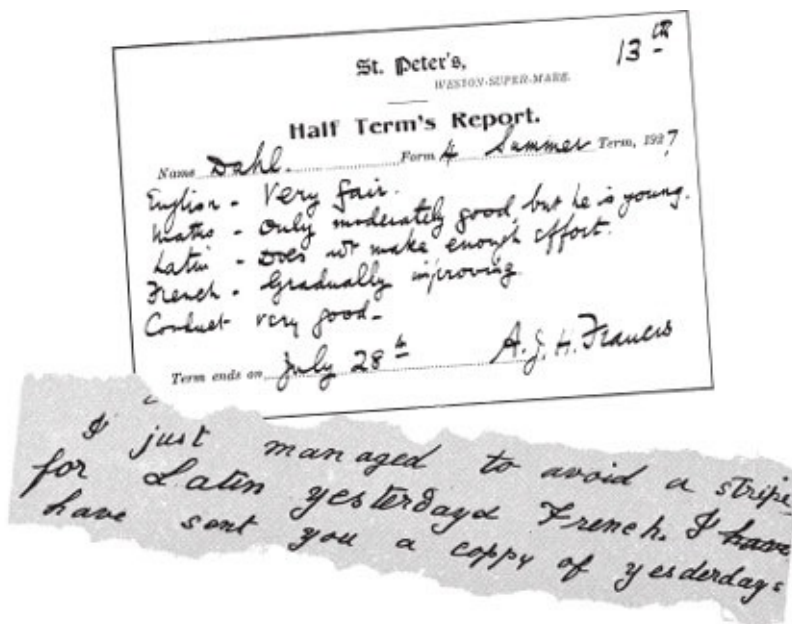 13th
St. Peter's,
WESTON-SUPER-MARE.
Half Term's Report.
Name Dahl. Form 4 Summer Term, 1927
English - Very fair.
Maths - Only moderately good, but he is young.
Latin - Does not make enough effort.
French - Gradually improving
Conduct very good -
Term ends on July 28th A.J.H. Francis
I just managed to avoid a stripe
for Latin yesterday & French. I have
have sent you a coppy of yesderdays